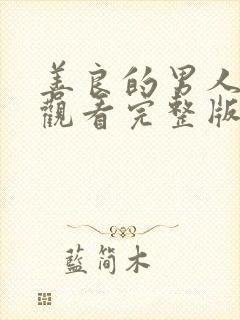 善良的男人
觀看完整版
藍简木